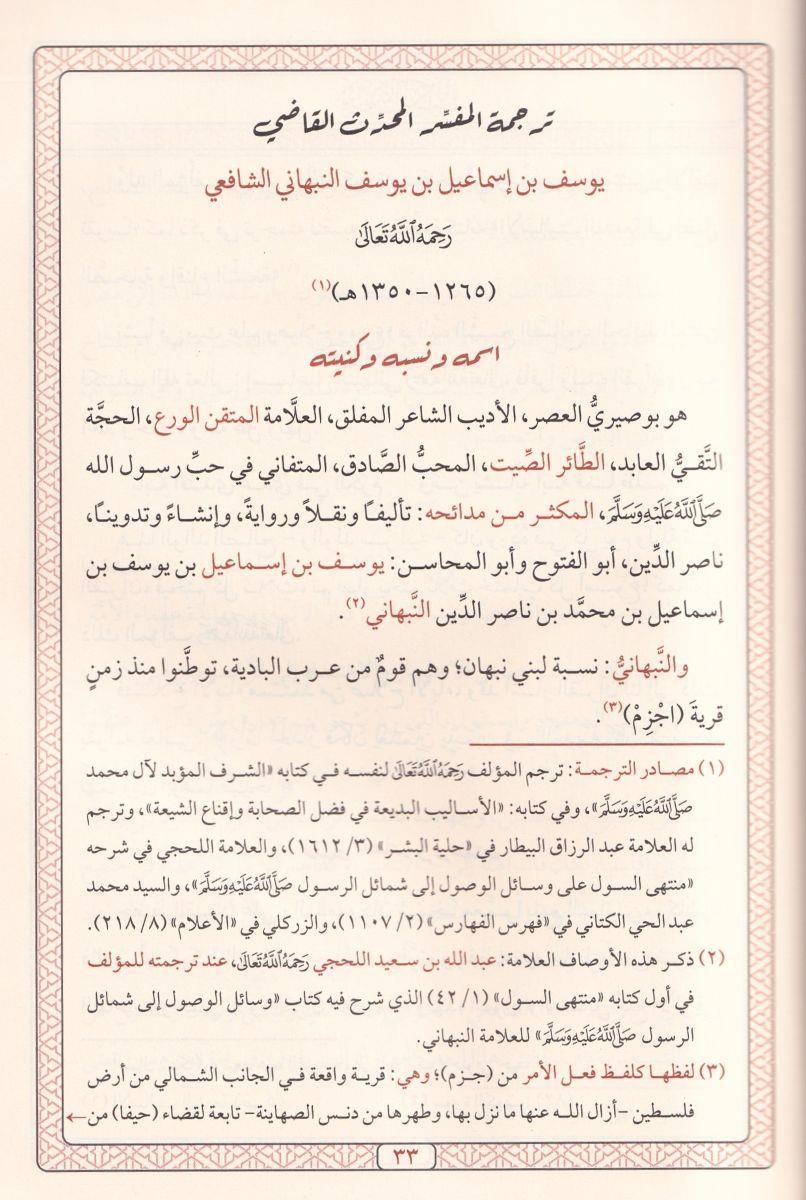 ترجمة المفسِّر المحدِّث القاضي
يوسف بن إسماعيل بن يوسف النبهاني الشافعي
رَحِمَهُ ٱللَّهُ تَعَالَىٰ
(١٢٦٥-١٣٥٠هـ)(١)
اسمه ونسبه وكنيته
هو بوصيريُّ العصر، الأديب الشاعر المفلق، العلَّامة المتقن الورع، الحجَّة
التَّقيُّ العابد، الطَّائر الصِّيت، المحبُّ الصَّادق، المتفاني في حبِّ رسول الله
صَلَّى ٱللَّهُ عَلَيْهِ وَسَلَّمَ، المكثر من مدائحه: تأليفًا ونقلاً وروايةً، وإنشاءً وتدوينـًا،
ناصر الدِّين، أبو الفتوح وأبو المحاسن: يوسف بن إسماعيل بن يوسف بن
إسماعيل بن محمَّد بن ناصر الدِّين النَّبهاني(٢).
والنَّبهانيُّ: نسبة لبني نبهان؛ وهم قومٌ من عرب البادية، توطَّنوا منذ زمنٍ
قريةَ (اجْزِمْ)(٣).
(١) مصادر الترجمة: ترجم المؤلف رَحِمَهُ ٱللَّهُ تَعَالَىٰ لنفسه في كتابه «الشرف المؤبد لآل محمد
صَلَّى ٱللَّهُ عَلَيْهِ وَسَلَّمَ»، وفي كتابه: «الأساليب البديعة في فضل الصحابة وإقناع الشيعة»، وترجم
له العلامة عبد الرزاق البيطار في «حلية البشر» (٣/ ١٦١٢)، والعلامة اللحجي في شرحه
«منتهى السول على وسائل الوصول إلى شمائل الرسول صَلَّى ٱللَّهُ عَلَيْهِ وَسَلَّمَ»، والسيد محمد
عبد الحي الكتاني في «فهرس الفهارس» (٢/ ١١٠٧)، والزركلي في «الأعلام» (٨/ ٢١٨).
(٢) ذكر هذه الأوصاف العلامة: عبد الله بن سعيد اللحجي رَحِمَهُ ٱللَّهُ تَعَالَىٰ، عند ترجمته للمؤلف
في أول كتابه «منتهى السول» (١/ ٤٢) الذي شرح فيه كتاب «وسائل الوصول إلى شمائل
الرسول صَلَّى ٱللَّهُ عَلَيْهِ وَسَلَّمَ» للعلامة النبهاني.
(٣) لفظها كلفظ فعل الأمر من (جزم)؛ وهي: قرية واقعة في الجانب الشمالي من أرض
فلسطين -أزال الله عنها ما نزل بها، وطهرها من دنس الصهاينة- تابعة لقضاء (حيفا) من←
٣٣